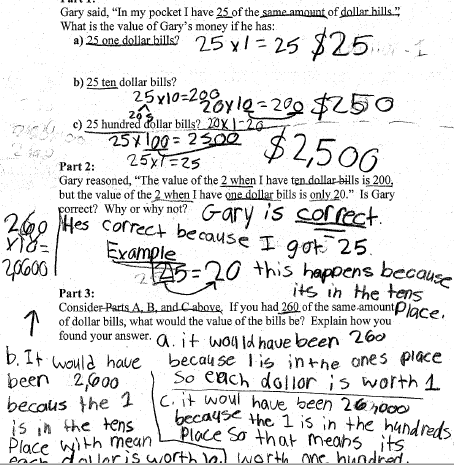 Gary said, "In my pocket I have 25 of the same amount of dollar bills."
What is the value of Gary's money if he has:
a) 25 one dollar bills? 25 x 1 = 25 $25
b) 25 ten dollar bills?
25x10=200
20 5 20x10=200 $250
c) 25 hundred dollar bills? 20x1=20
25x100=2500
25x1=25 $2,500
Part 2:
Gary reasoned, "The value of the 2 when I have ten dollar bills is 200,
but the value of the 2 when I have one dollar bills is only 20." Is Gary
correct? Why or why not? Gary is correct.
Hes correct because I got 25.
Example
25=20 this happens because
its in the tens
place.
260
x10=
20600
Part 3:
Consider Parts A, B, and C above. If you had 260 of the same amount
of dollar bills, what would the value of the bills be? Explain how you
found your answer. a. it would have been 260
because 1 is in the ones place
So each dollor is worth 1
b. It would have
been 2,600
becaus the 1
is in the tens
Place with mean
each dollor is worth
c. it woul have been 26,000
becayse the 1 is in the hundreds
Place So that means its
worth one hundred.